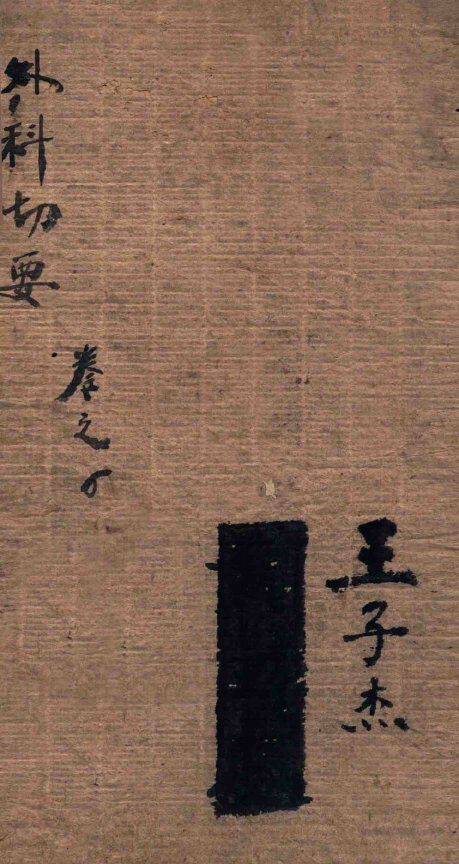 王子杰
外科切要
卷之